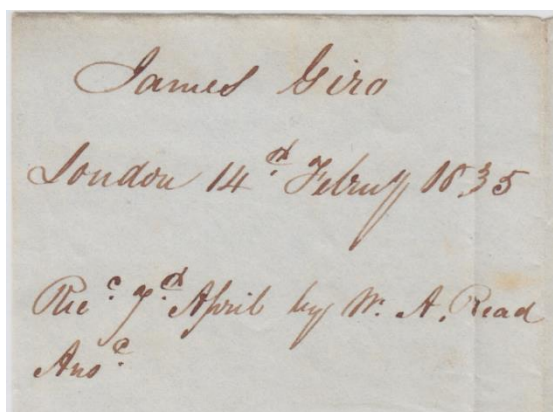 James Giro
London 14th Febru'y 1835
Rec.d 7th April by W. A. Read
Ans.d